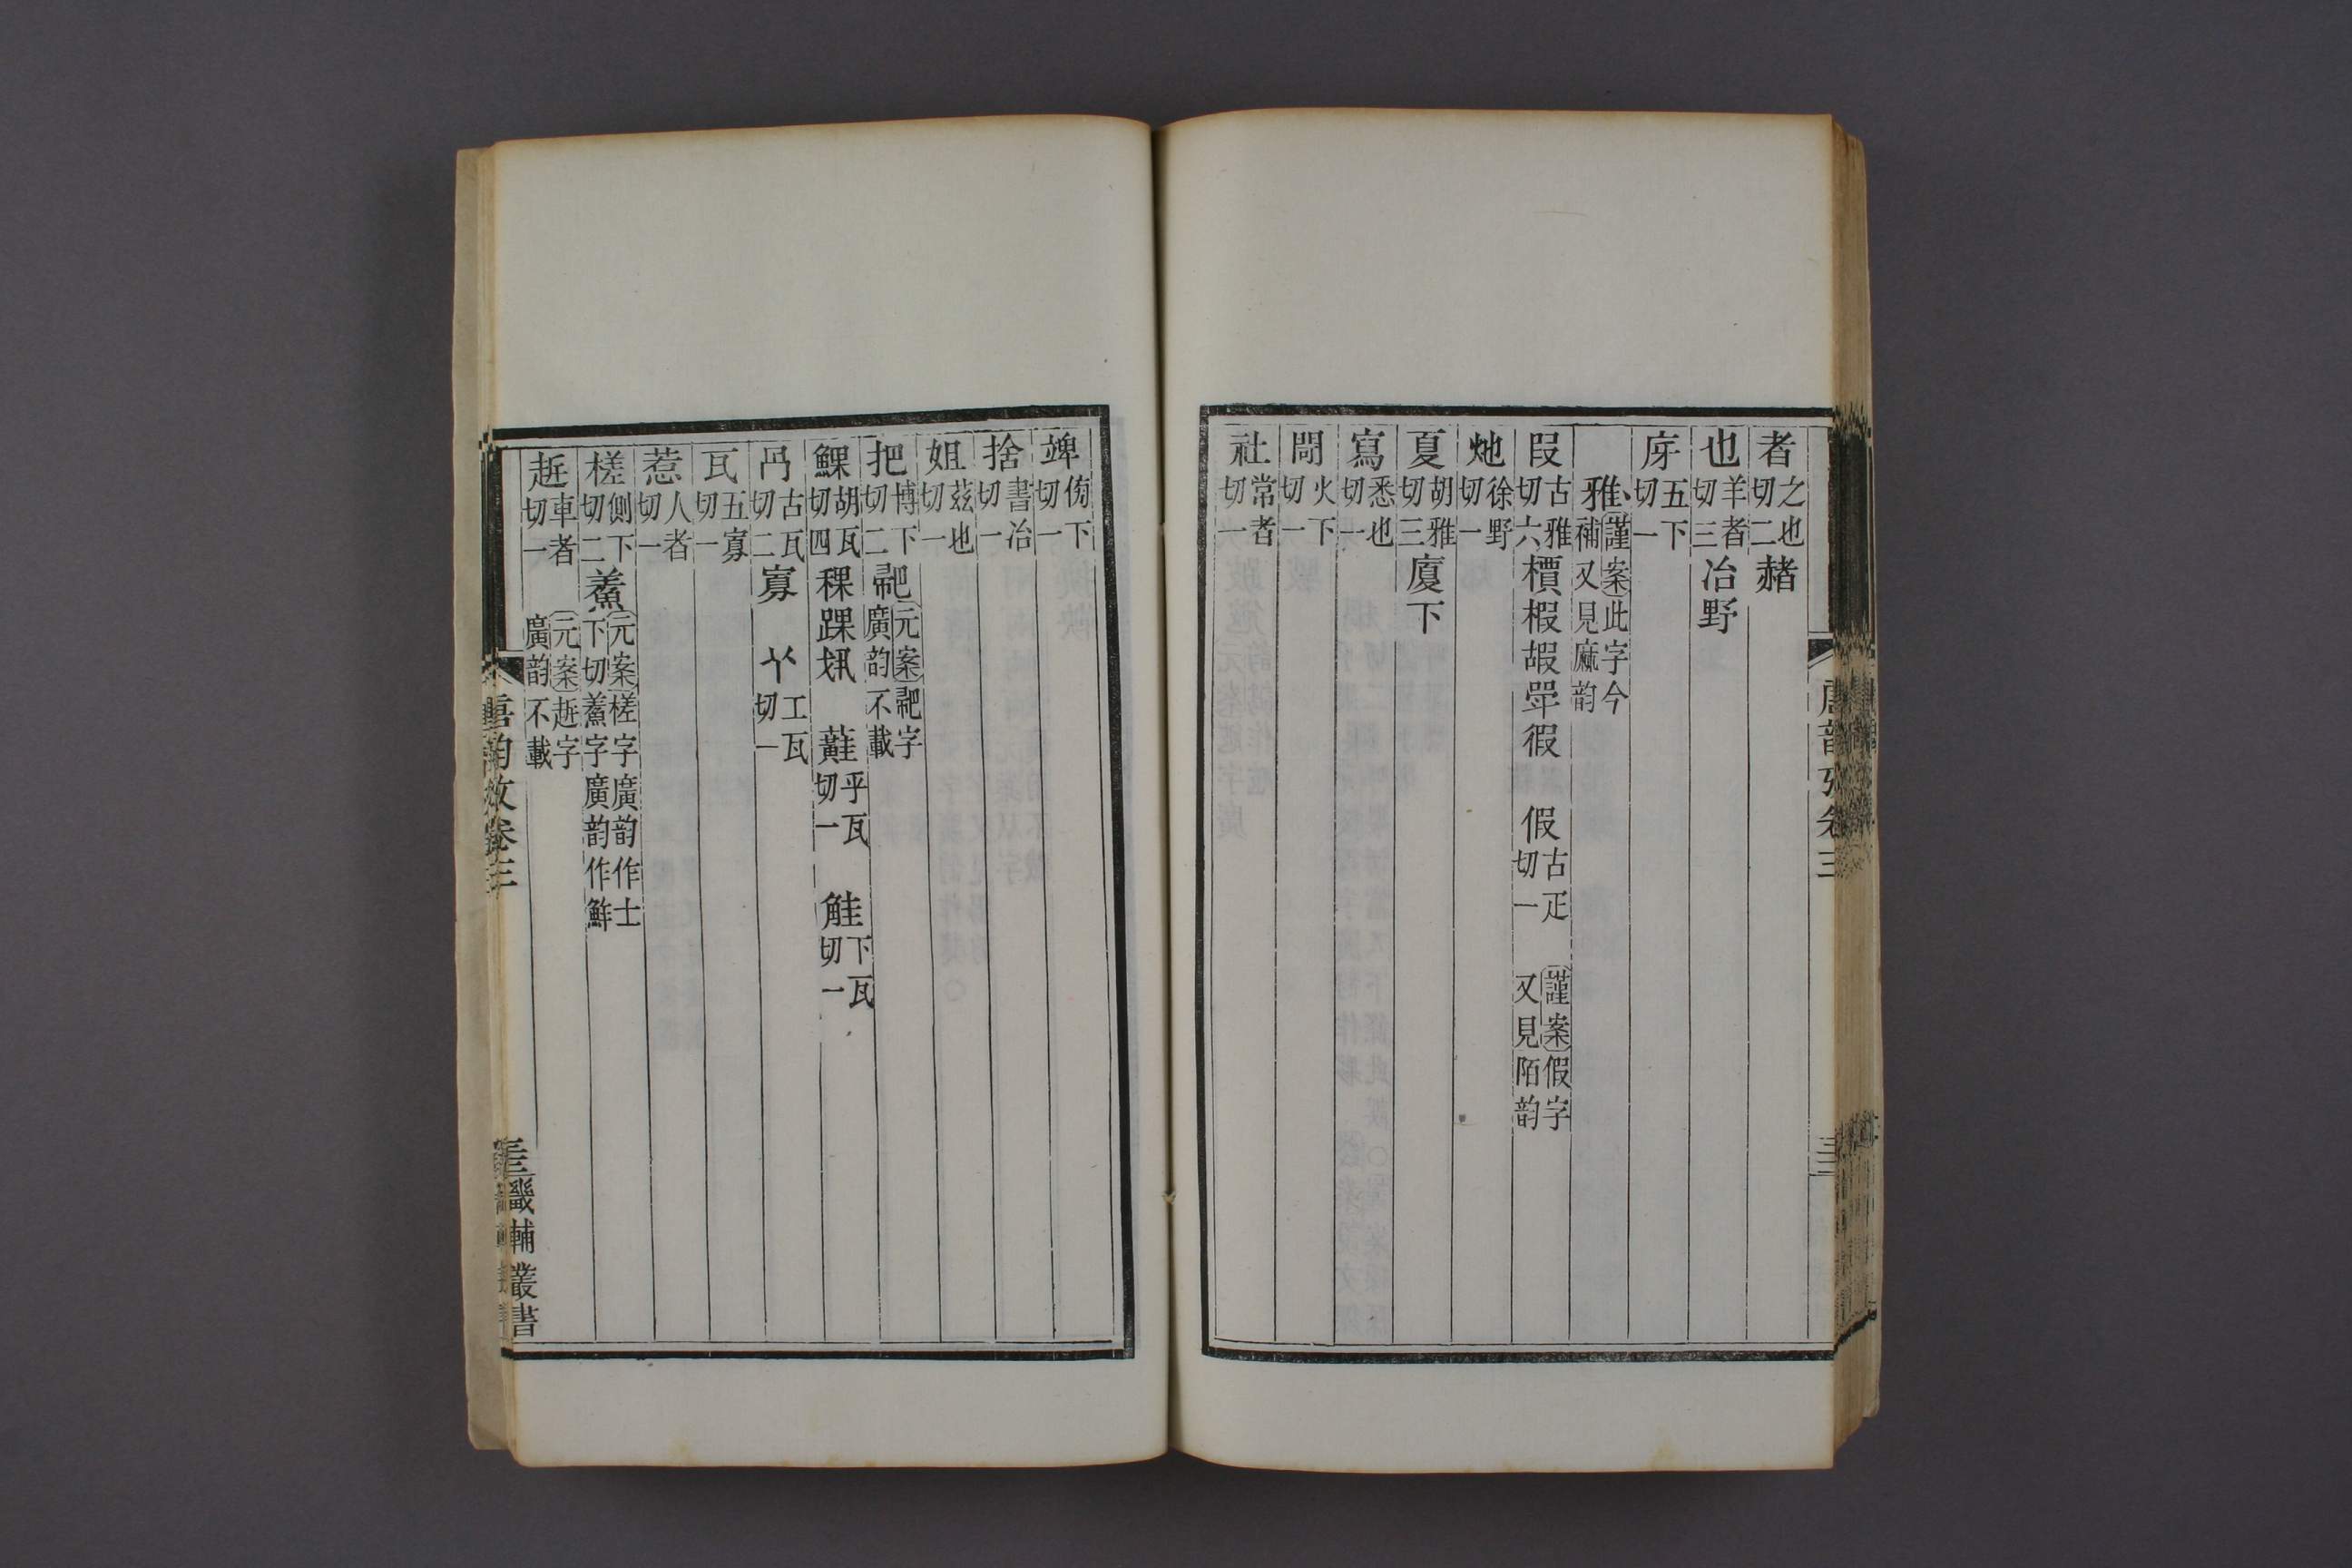 者之也切二赭
也羊者切三冶野
庌五下切一
雅謹案此字今補又見麻韵
叚古雅切六檟椵嘏斝徦 假古疋切一 謹案假字又見陌韵
灺徐野切一
夏胡雅切三廈下
寫悉也切一
閜火下切一
社常者切一
唐韵攷卷三
竨傍下切一
捨書冶切一
姐茲也切一
把博下切二𩨘元案字廣韵不載
鯶胡瓦切四稞踝𢦚 蘳乎瓦切一 觟下瓦切一
冎古瓦切二寡 𠁥工瓦切一
瓦五寡切一
惹人者切一
槎側下切二鮺元案槎字廣韵作士下切鮺字廣韵作鮓
䞣車者切一 元案䞣字廣韵不載
唐韵攷卷三
畿輔叢書